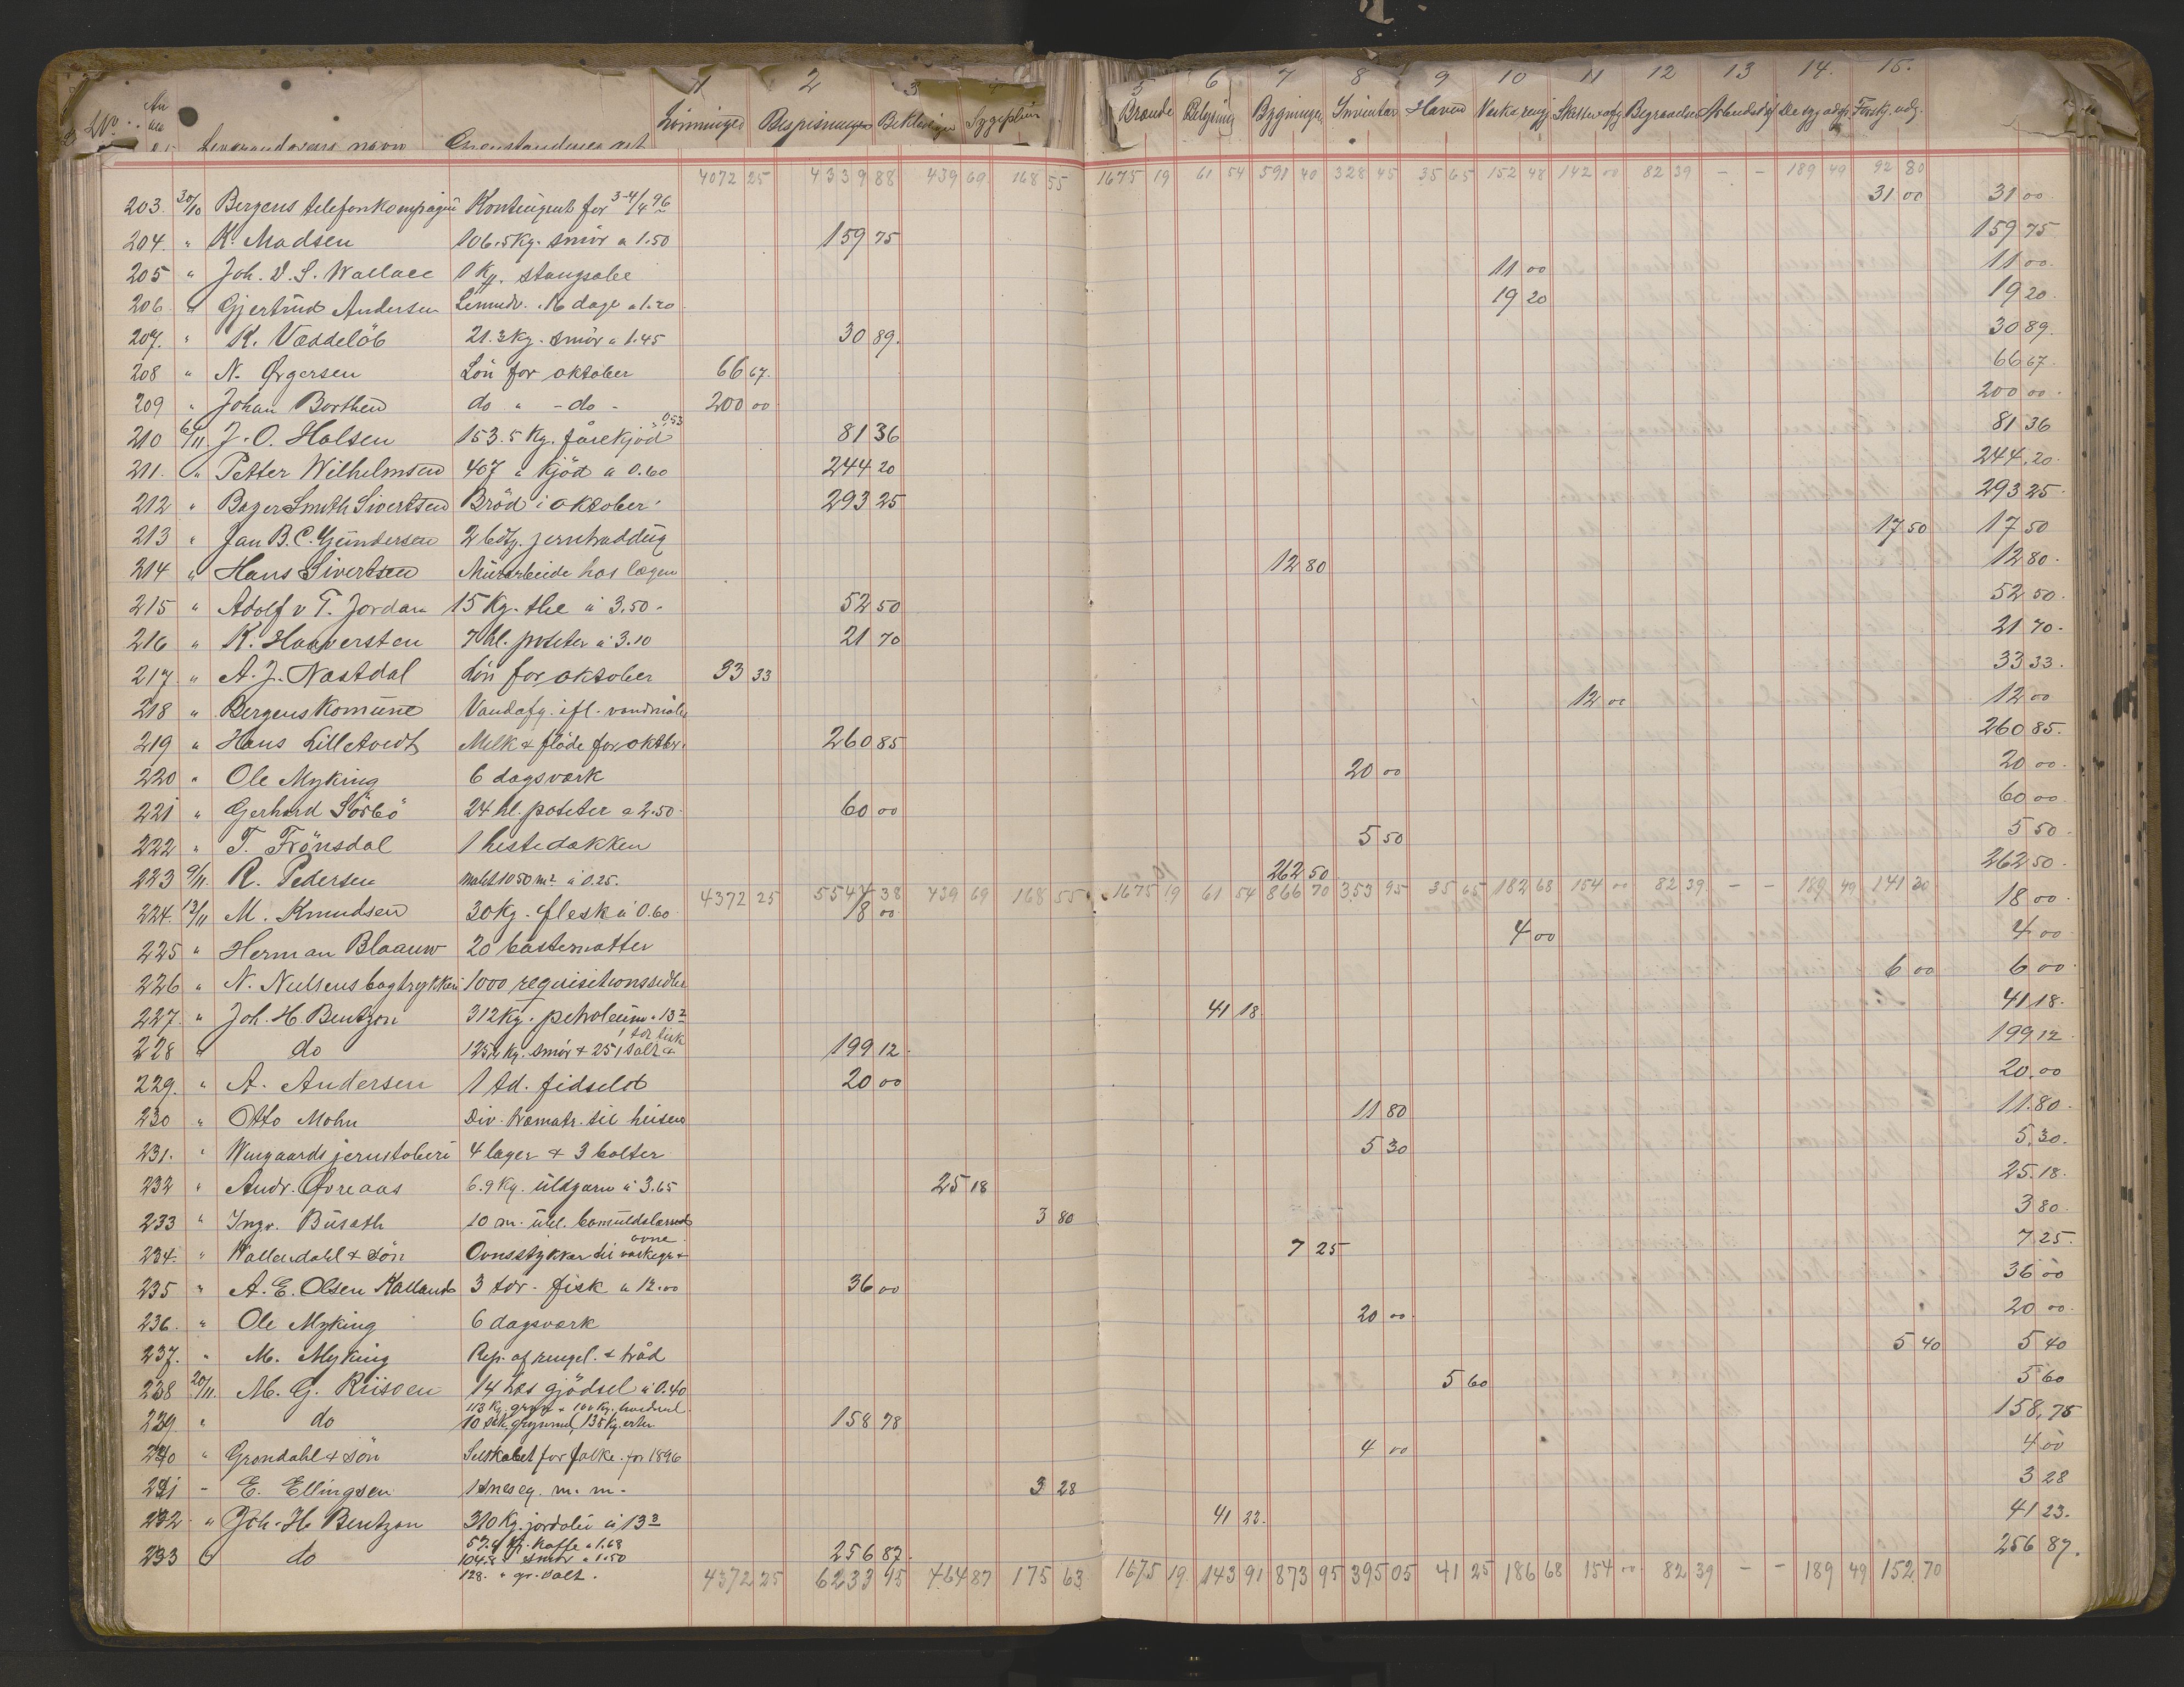 1 2 3 4 5 6 7 8 9 10 11 12 13 14. 15.
No. Leverandørens navn Lønninger Bespisning Beklædning Sygepleie Brænde Belysning Bygninger Inventar Haven Begravelse Forskj. udg.
4072 25 4339 88 439 69 168 55 1675 19 61 54 591 40 328 45 35 65 152 48 142 00 82 39 - - 189 49 92 80
203. 30/10 Bergens telefonkompagni Kontingent for 31 00 31 00
204. " K. Madsen 106.5 Kg. smør a 1.50 159 75 159 75
205 " Joh. D. S. Wallace 1 Kg. stangsabe 11 00 11 00
206. " Gjertrud Andersen 16 dage a 1.20 19 20 19 20
207. " K. Væddeløb 21.3 Kg. smør a 1.45 30 89. 30 89.
208 " N. Ørgersen Løn for oktober 66 67. 66 67.
209 " Johan Borthen do " - do - 200 00 200 00
210 6/11 J. O. Halsen 153.5 Kg. fårekjød a 0.53 81 36 81 36
211. " Petter Wilhelmsen 407 " Kjød a 0.60 244 20 244.20
212 " Bager Smith Sivertsen Brød i oktober 293 25 293 25
213 " Jan B. C. Gundersen 2 bdtg. jerntraad 17 50 17 50
214 " Hans Sivertsen Murarbeide hos lægen 12 80 12 80
215 " Adolf v T. Jordan 15 Kg. the à 3.50 52 50 52 50
216 " K. Haaversten 7 hl. poteter à 3.10 21 70 21 70
217 " A. J. Nastdal Løn for oktober 33 33 33 33.
218 " Bergens Komune Vandafg. ifl. vandmåler 12 00 12 00
219 " Hans Lilletvedt Melk & fløde for oktbr. 260 85 260 85.
220 " Ole Myking 6 dagsværk 20 00 20 00
221 " Gerhard Sørbø 24 hl. poteter a 2.50 60 00 60 00
222 " T. Frønsdal 1 hestedækken 5 50 5 50
223 9/11. R. Pedersen Malet 1050 m² à 0.25. 262 50 262 50
4372 25 5544 38 439 69 168 55 1675 19 61 54 866 70 353 95 35 65 182 68 154 00 82 39 - - 189 49 141 30
224. 13/11 M. Knudsen 30 Kg. flesk à 0.60 18 00 18 00
225 " Herman Blaauw 20 bastematter 4 00 4 00
226 " N. Nielsens bogtrykkeri 1000 requisitionssedler 6 00 6 00
227. " Joh. H. Bentzon 312 Kg. petroleum à 13² 41 18. 41 18.
228 " do smør + 251 salt & 1 tdr fisk 199 12 199 12
229. " A. Andersen 1 td. fidsild 20 00 20.00
230 " Otto Mohn Div. til heisen 11 80 11.80
231. " Wingaards jernstøberi 4 lager & 3 bolter 5 30 5.30.
232 " Andr. Øvreaas 6.9 Kg. uldgarn à 3.65 25 18 25.18.
233 " Ingv. Busath 10 m. ubl. bomuldslærred 3 80 3 80
234. " Wallendahl & Søn Ovnsstykker til ovne 7 25 7.25.
235 " A. E. Olsen Kalland 3 tdr. fisk a 12.00 36 00 36 00
236. " Ole Myking 6 dagsværk 20 00 20 00
237. " M. Myking Rep. af & tråd 5 40 5 40
238 20/11. M. G. Riisøen 14 læs gjødsel à 0.40 5 60 5 60
239 " do 113 Kg. gryn & 100 Kg. hvedmel
10 sæk. grynmel, 135 Kg. erter 158 78 158.75
240 " Grøndahl & Søn Selskabet for folke. for 1896 4 00 4 00
241 - E. Ellingsen m. m. 3 28 3 28
242 " Joh. H. Bentzon 310 Kg. jordolie à 13³ 41 23. 41 23.
243 " do 57.4 Kg. Kaffe a 1.68
104.8 " smør a 1.50 256 87. 256 87.
128. " gr. salt.
4372 25 6233 95 464 87 175 63 1675 19 143 91 873 95 395 05 41 25 186 68 154 00 82 39 - - 189 49 152 70